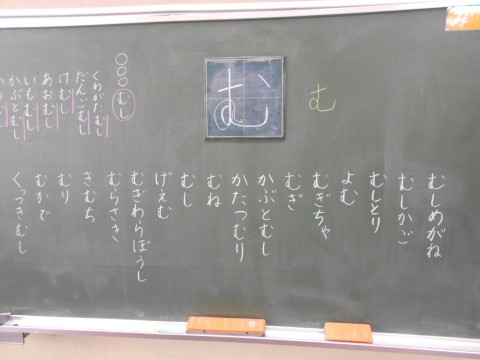 む
む
むしめがね
むしかご
むしとり
よむ
むぎちゃ
むぎ
かぶとむし
かたつむり
むね
むし
げえむ
むぎわらぼうし
むらさき
きむち
むり
むかで
くっつきむし
○○○むし
くわがたむし
だんごむし
けむし
あおむし
いもむし
かぶとむし